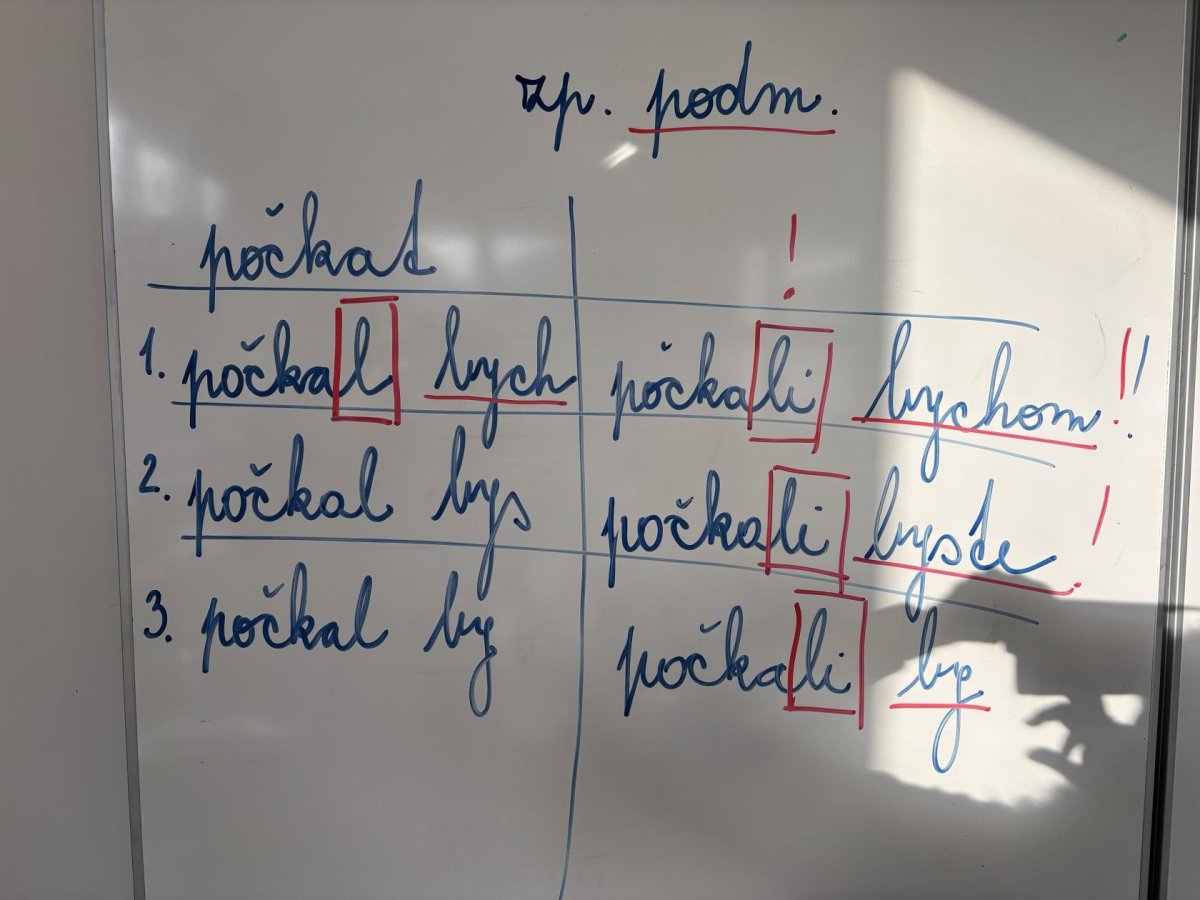 zp. podm.
počkat !
1. počkal bych počkali bychom!!
2. počkal bys počkali byste!
3. počkal by počkali by